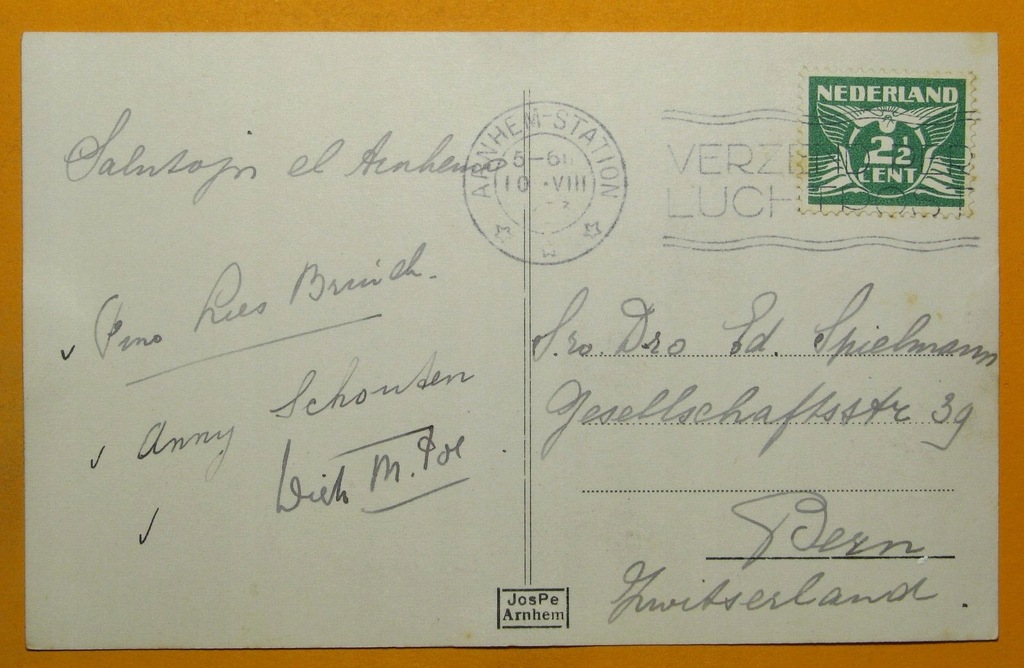 Salutojn el Arnhem
Pino Lies Bruich.
Anny Schouten
M. Poe
ARNHEM-STATION
10 VIII
NEDERLAND
2½
CENT
Sro. Dro Ed. Spielmann
Gesellschaftsstr 39
Bern
Zwitserland.
JosPe
Arnhem